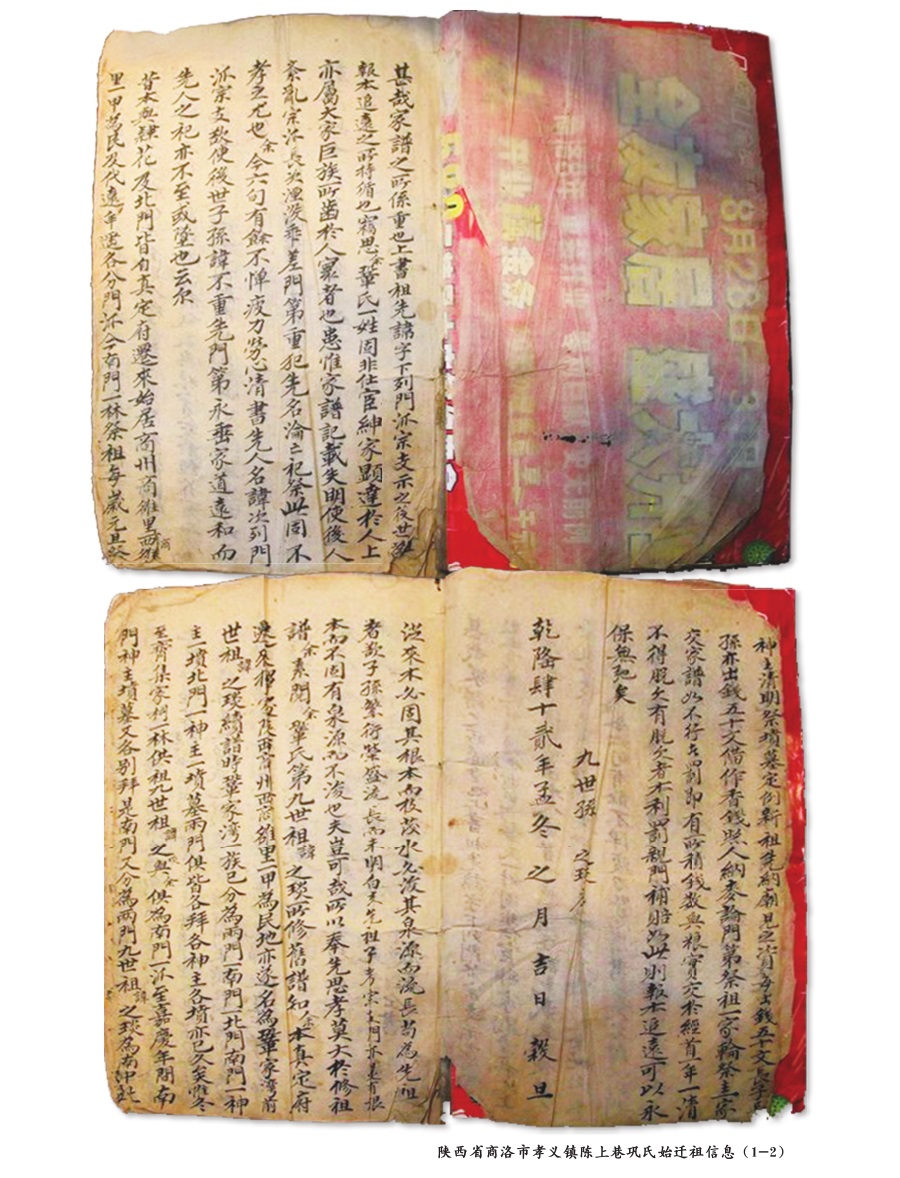 甚哉家譜之所係重也上書祖先諱字下列門派宗支示之後世雖
報本追遠之所持循也竊思余鞏氏一姓固非仕宦紳家顯達於人上
亦屬大家巨族所齒於人寰者也患惟家譜記載失明使後人
紊亂宗派長次湮沒乖差門第重犯先名淪亡祀祭此固不
孝之尤也余今六旬有餘不憚疲力勞心清書先人名諱次列門
派宗支欲使後世子孫諱不重先門第永垂家道遠和而
先人之祀亦不至或墜也云尔
昔本與棣花及北門皆自真定府遷來始居商州商雒里西
里一甲為民及代遠年遷各分門派今南門一林祭祖每歲元旦
全友家居 盛大
8月28日
神主清明祭墳墓定例新祖先納廟見之資每出錢五十文
孫亦出錢五十文借作香錢與人納麥論門第祭祖一家輪祭主家
交家譜以不行去罰即有所積錢数與粮實交於經首一年一清
不得脫欠有脫欠者本利罰親門補賠如此則報本追遠可以永
保無弛矣
九世孫 之琰
乾隆肆十貳年孟冬之月吉日穀旦
從來木必固其根本而枝茂水必浚其泉源而流長苟為先祖
者欲子孫繁衍榮盛流長而未明白夫先祖子考宗支門
本而不固有泉源而不浚也夫豈可哉所以奉先思孝莫大於修祖
譜余素閱余鞏氏第九世祖諱之琰所修舊譜知余本真定府
遷來移處陝西商州西商雒里一甲為民地亦遂名為鞏家湾前
世祖諱之琰續譜時鞏家湾一族已分為兩門南門一北門南門一神
主一墳北門一神主一墳墓兩門俱皆各拜各神主各墳亦已久矣惟冬
至齊集家祠一林供祖九世祖諱之與余俱為南門一派至嘉慶年間南
門神主墳墓又各別拜是南門又分為兩門九世祖諱之琰為南
陕西省商洛市孝义镇陈上巷巩氏始迁祖信息（1-2）